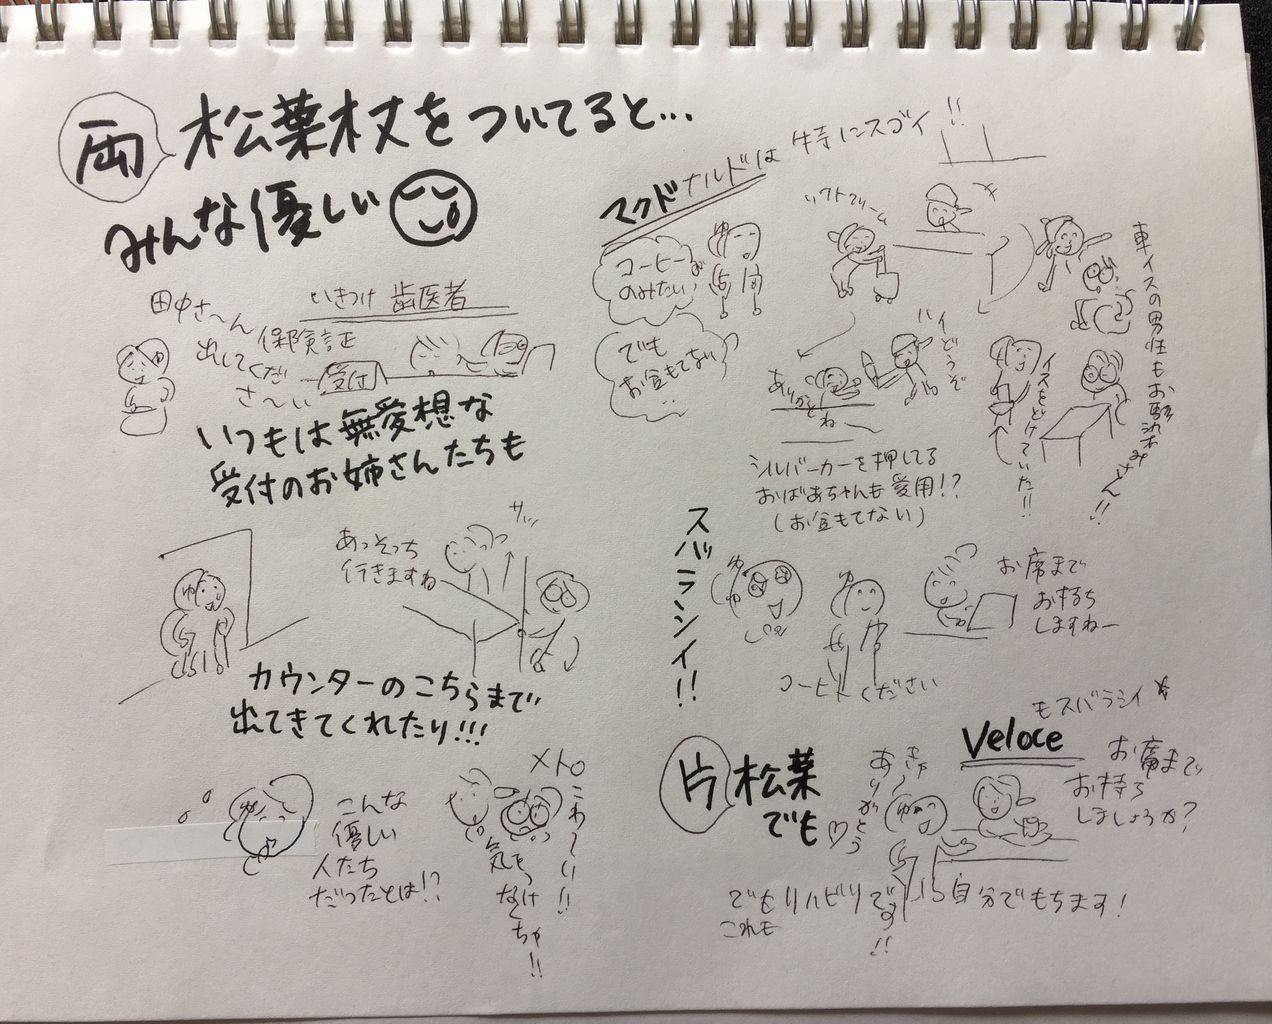 両 松葉杖をついてると…
みんな優しい
いきつけ 歯医者
田中さ〜ん
保険証
出してくだ
さ〜い
受付
いつもは無愛想な
受付のお姉さんたちも
あっそっち
行きますね
サッ
ゆ
カウンターのこちらまで
出てきてくれたり!!!
ゆ
こんな
優しい
人たち
だったとは!?
メトロ
こわ〜い!!
気をつけなくちゃ!!
マクドナルドは 特にスゴイ!!
ゆ
コーヒー
のみたいが
でも
お盆もてない
ソフトクリーム
ハイどうぞ
ありがとね〜
シルバーカーを押してる
おばあちゃんも愛用!?
(お盆もてない)
車イスの男性もお馴染みさん!!
イスをどけていた!!
スバラシイ!!
ゆ
ゆ
ゆ
コーヒーください
お席まで
お持ち
しますねー
片 松葉
でも
もスバラシイ
Veloce
お席まで
お持ち
しましょうか?
きゃー
ありがとう♡
ゆ
でもリハビリです!!
これも
自分でもちます!